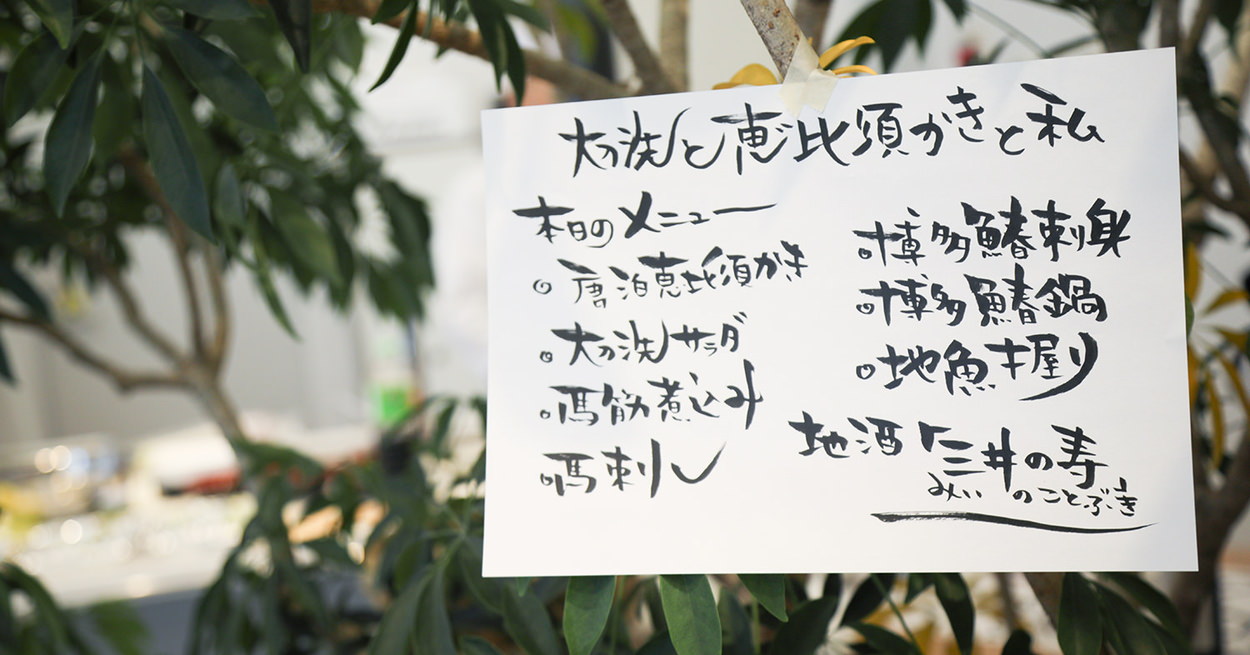 大刀洗と恵比須かきと私
本日のメニュー
○唐泊恵比須かき
○大刀洗サラダ
○馬筋煮込み
○馬刺し
○博多鰆刺身
○博多鰆鍋
○地魚握り
地酒「三井の寿
みいのことぶき